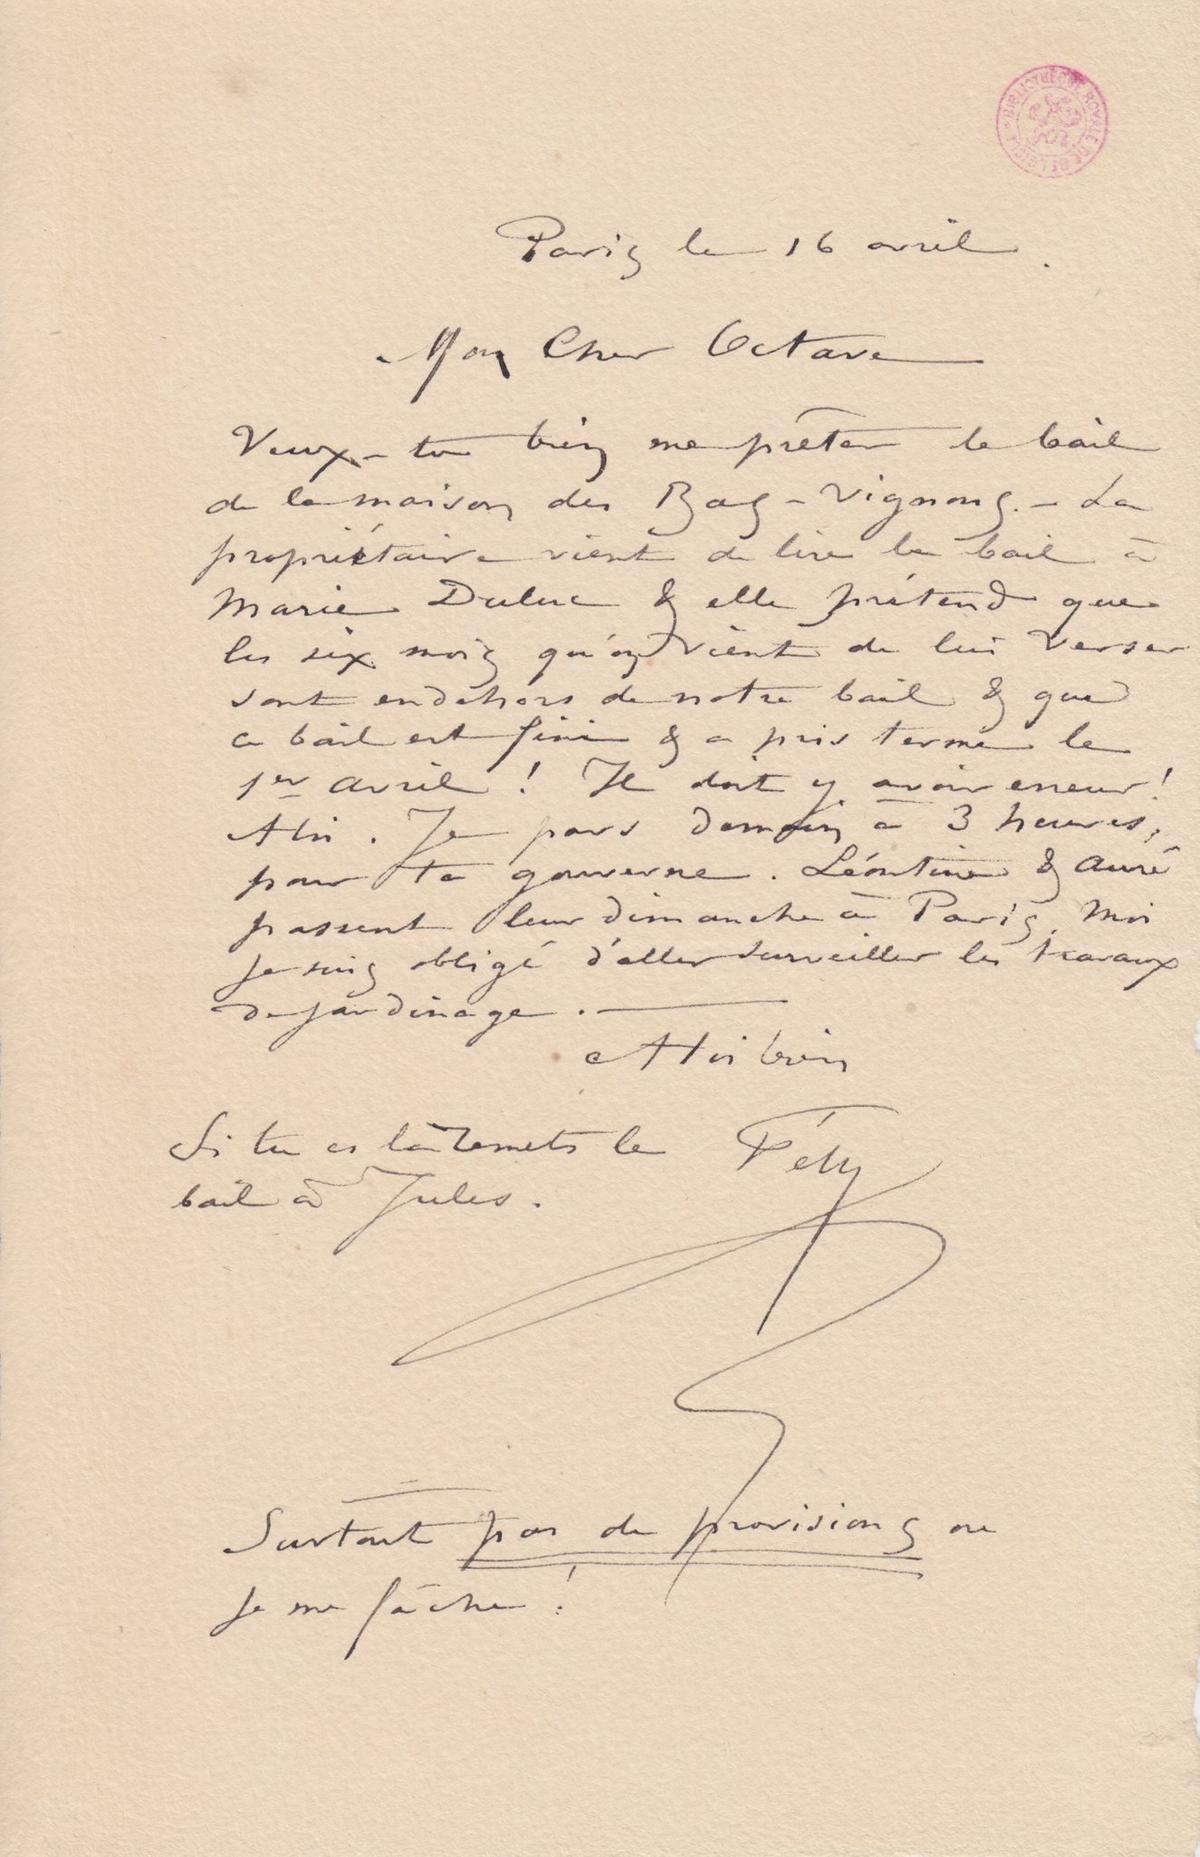 BIBLIOTHÈQUE ROYALE DE BELGIQUE
Paris le 16 avril.
Mon Cher Octave
Veux-tu bien me prêter le bail
de la maison des Bas-Vignons. - La
propriétaire vient de lire le bail à
Marie Duluc & elle prétend que
les six mois qu'on vient de lui verser
sont en dehors de notre bail & que
ce bail est fini & a pris terme le
1er avril ! Il doit y avoir erreur !
Je pars demain à 3 heures,
pour ta gouverne. Léontine & Auré
passent leur dimanche à Paris. Moi
je suis obligé d'aller surveiller les travaux
de jardinage. -
à toi bien
Fély
Si tu es là remets le
bail à Jules.
Surtout pas de provisions ou
je me fâche !